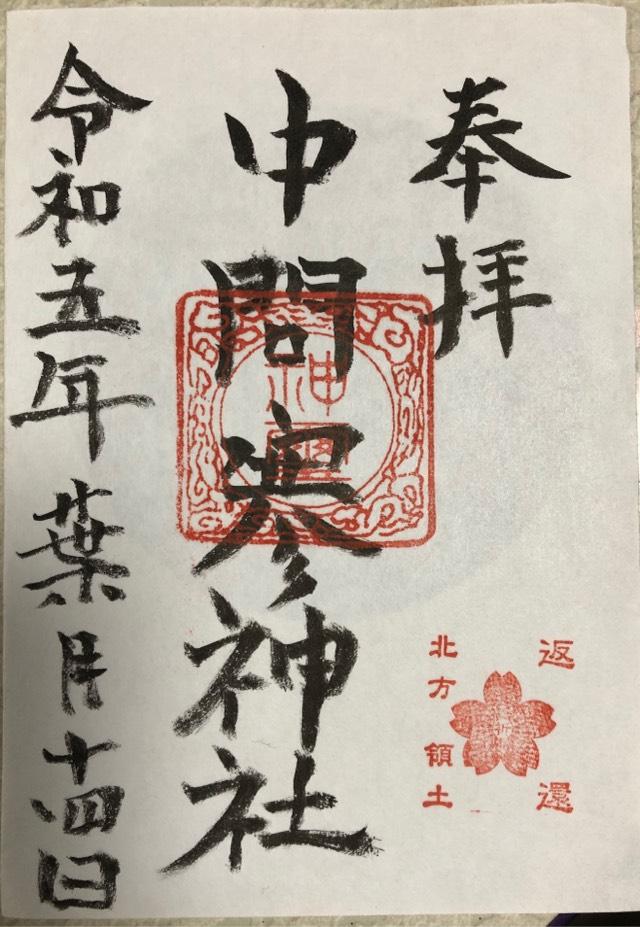 奉拝
中問寒神社
令和五年葉月十四日
神璽
返還
北方領土